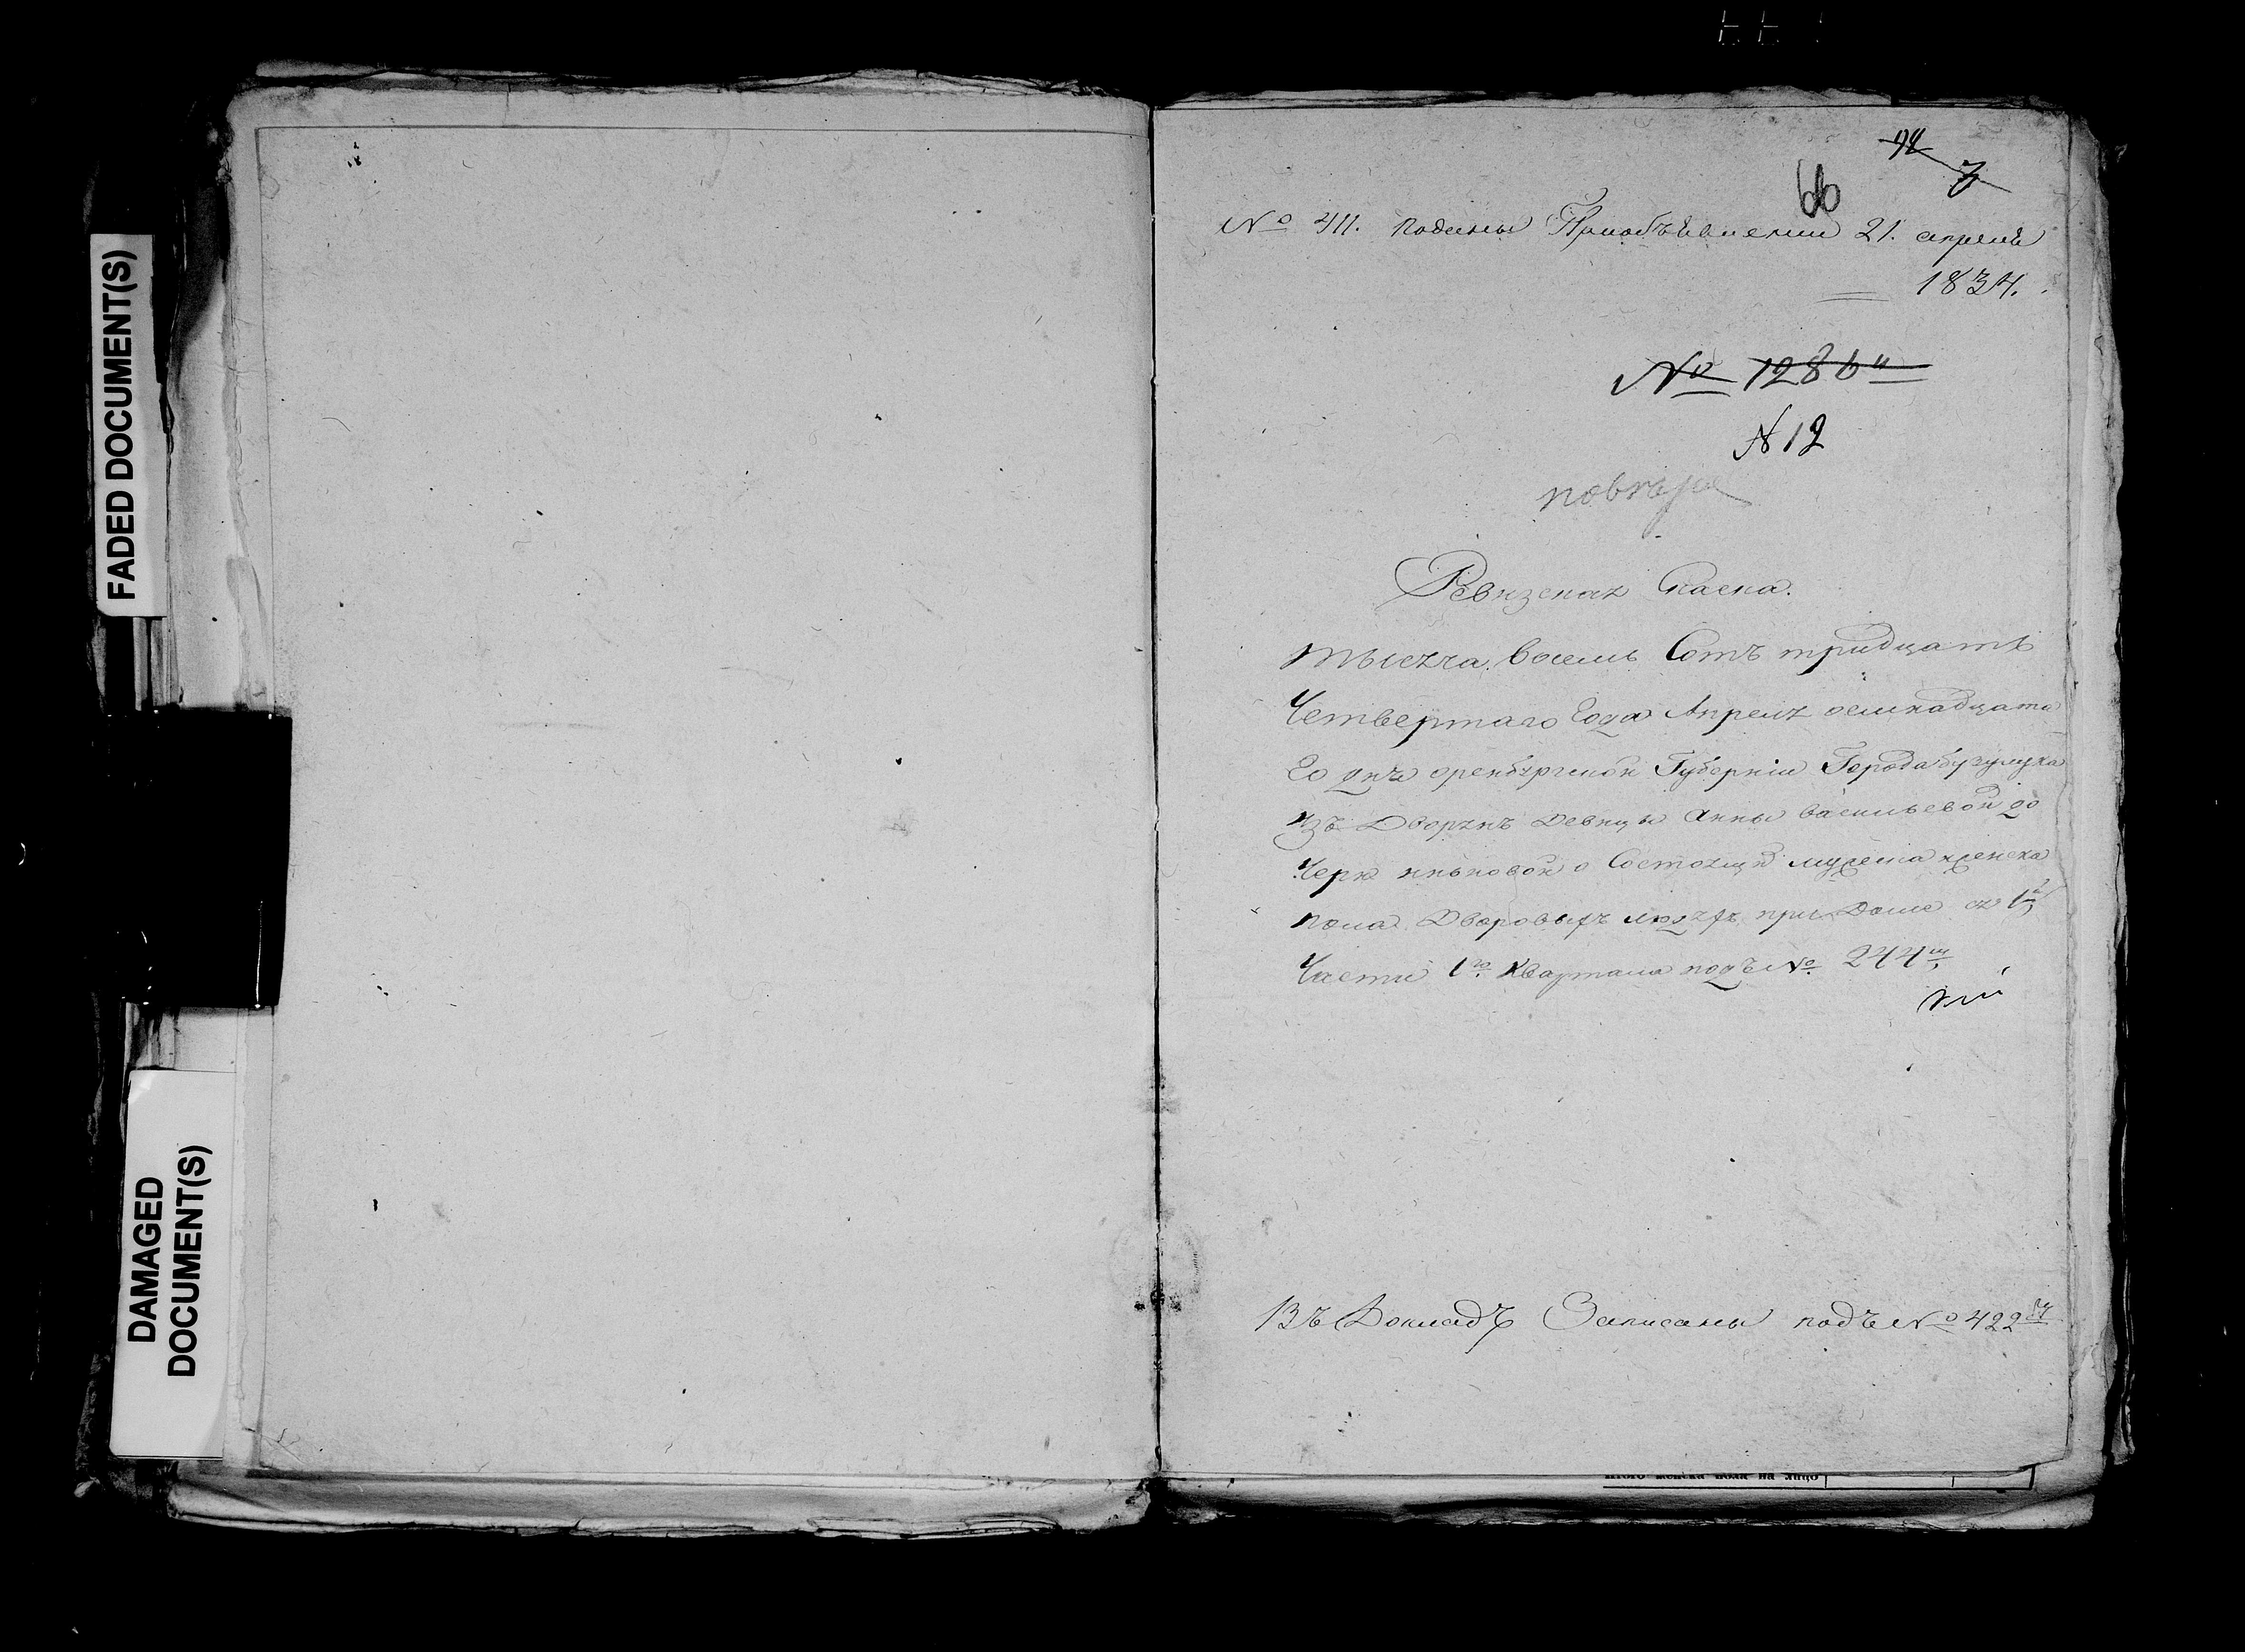 FADED DOCUMENT(S)
DAMAGED
DOCUMENT(S)
7
66
№ 411. поданы При объявлении 21. апреля
1834.
№ 1286
№ 12
Ревизская Скаска.
тысяча восемь Сотъ тридцать
Четвертаго Года Апреля осмнадцата
го дня оренбургской Губерніи Города бузулука
изъ Дворянъ Девицы Анны васильевой
о Состоящихъ мужеска женска
пола Дворовыхъ людяхъ при Доме 1й
Части 1го Квартала подъ № 244м
Въ Докладъ Записаны подъ № 422
итого женска пола на лицо